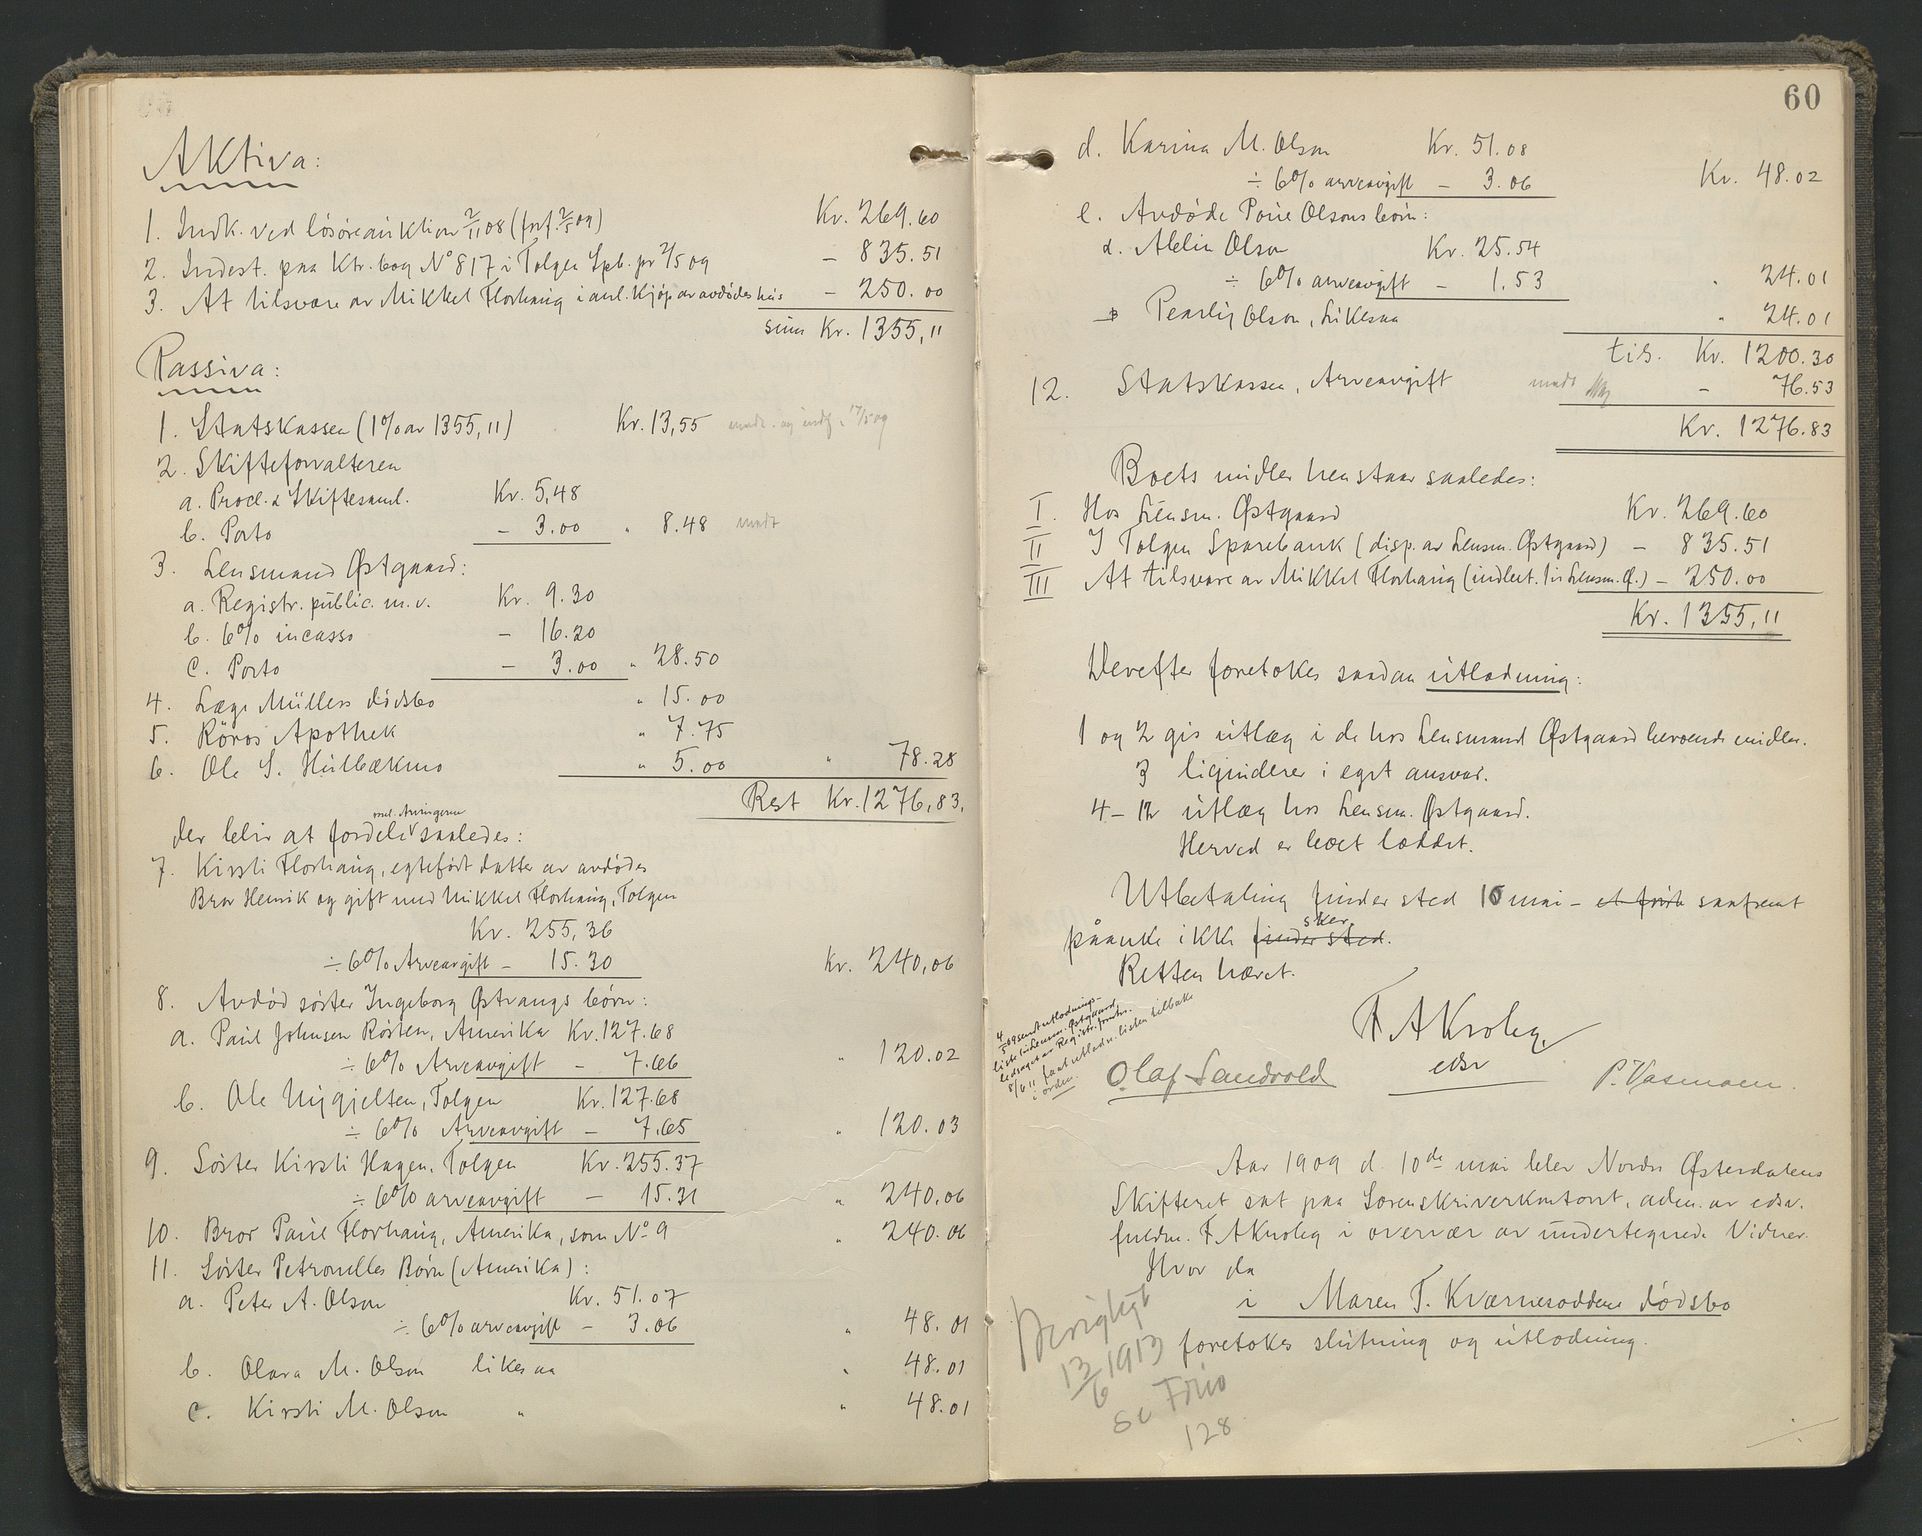 Aktiva:
1. Indk. ved løsøreauktion 2/11 08 (forf. 2/5 09) Kr. 269.60
2. Indest. paa Ktr. bog No 817 i Tolgen Spb. pr 2/5 09 – 835.51
3. At tilsvare av Mikkel Florhaug i anl. kjøp av avdødes hus – 250.00
sum Kr. 1355,11
Passiva:
1. Statskassen (1% av 1355,11) Kr. 13,55 medt. og indf. i 17/5 09
2. Skifteforvalteren
a. Procl. & Skiftesaml. Kr. 5,48
b. Porto – 3.00 " 8.48 medt
3. Lensmand Østgaard:
a. Registr. public. m. v. Kr. 9.30
b. 6% incasso – 16.20
c. Porto – 3.00 " 28.50
4. Læge Müllers dødsbo " 15.00
5. Røros Apothek " 7.75
6. Ole S. Hulbækmo " 5.00 " 78.28
Rest Kr. 1276,83.
mel. Arvingerne
der blir at fordele saaledes:
7. Kirsti Florhaug, egtefødt datter av avdødes
Bror Henrik og gift med Mikkel Florhaug, Tolgen
Kr. 255,36
÷ 6% Arveavgift – 15.30 Kr. 240,06
8. Avdød søster Ingeborg Østvangs børn:
a. Paul Johnsen Røsten, Amerika Kr. 127.68
÷ 6% Arveavgift – 7.66 " 120.02
b. Ole Nygjelten, Tolgen Kr. 127.68
÷ 6% Arveavgift – 7.65 " 120.03
9. Søster Kirsti Hagen, Tolgen Kr. 255.37
÷ 6% arveavgift – 15.31 " 240.06
10. Bror Paul Florhaug, Amerika, som No 9 " 240.06
11. Søster Petronelles Børn (Amerika):
a. Peter A. Olson Kr. 51.07
÷ 6% arveavgift – 3.06 " 48.01
b. Olava M. Olson likesaa " 48.01
c. Kirsti M. Olson " " 48.01
60
d. Karina M. Olson Kr. 51.08
÷ 6% arveavgift – 3.06 Kr. 48.02
e. Avdøde Olsons børn:
α. Alelia Olson Kr. 25.54
÷ 6% arveavgift – 1.53 " 24.01
β Pearly Olson, likesaa " 24.01
tils. Kr. 1200.30
12. Statskassen, Arveavgift medt – 76.53
Kr. 1276.83
Boets midler henstaar saaledes:
I. Hos Lensm. Østgaard Kr. 269.60
II I Tolgen Sparebank (disp. av Lensm. Østgaard) – 835.51
III At tilsvare av Mikkel Florhaug (indbet. til Lensm. Ø.) – 250.00
Kr. 1355,11
Derefter foretokes saadan utlodning:
1 og 2 gis utlæg i de hos Lensmand Østgaard beroende midler.
3 liqviderer i eget ansvar.
4–12 utlæg hos Lensm. Østgaard.
Herved er boet loddet.
Utbetaling finder sted 16 mai – et saafremt
sker
paaanke ikke finder sted.
Retten hævet.
F A Krohg
edsv
Olaf Sandvold
P. Vasmoen.
4/5 09 sendt utlodnings-
liste til Lensm. Østgaard
ledsaget av Registr. forretn.
8/6 11 faat utlodn. listen tilbake
i orden.
Aar 1909 d. 10de mai blev Nordre Østerdalens
Skifteret sat paa Sorenskriverkontoret, adm. av edsv.
fuldm. F A Krohg i overvær av undertegnede Vidner.
Hvor da
i Maren T. Kværneroddens dødsbo
foretokes slutning og utlodning.
Berigtigt
13/6 1913
se Folio
128